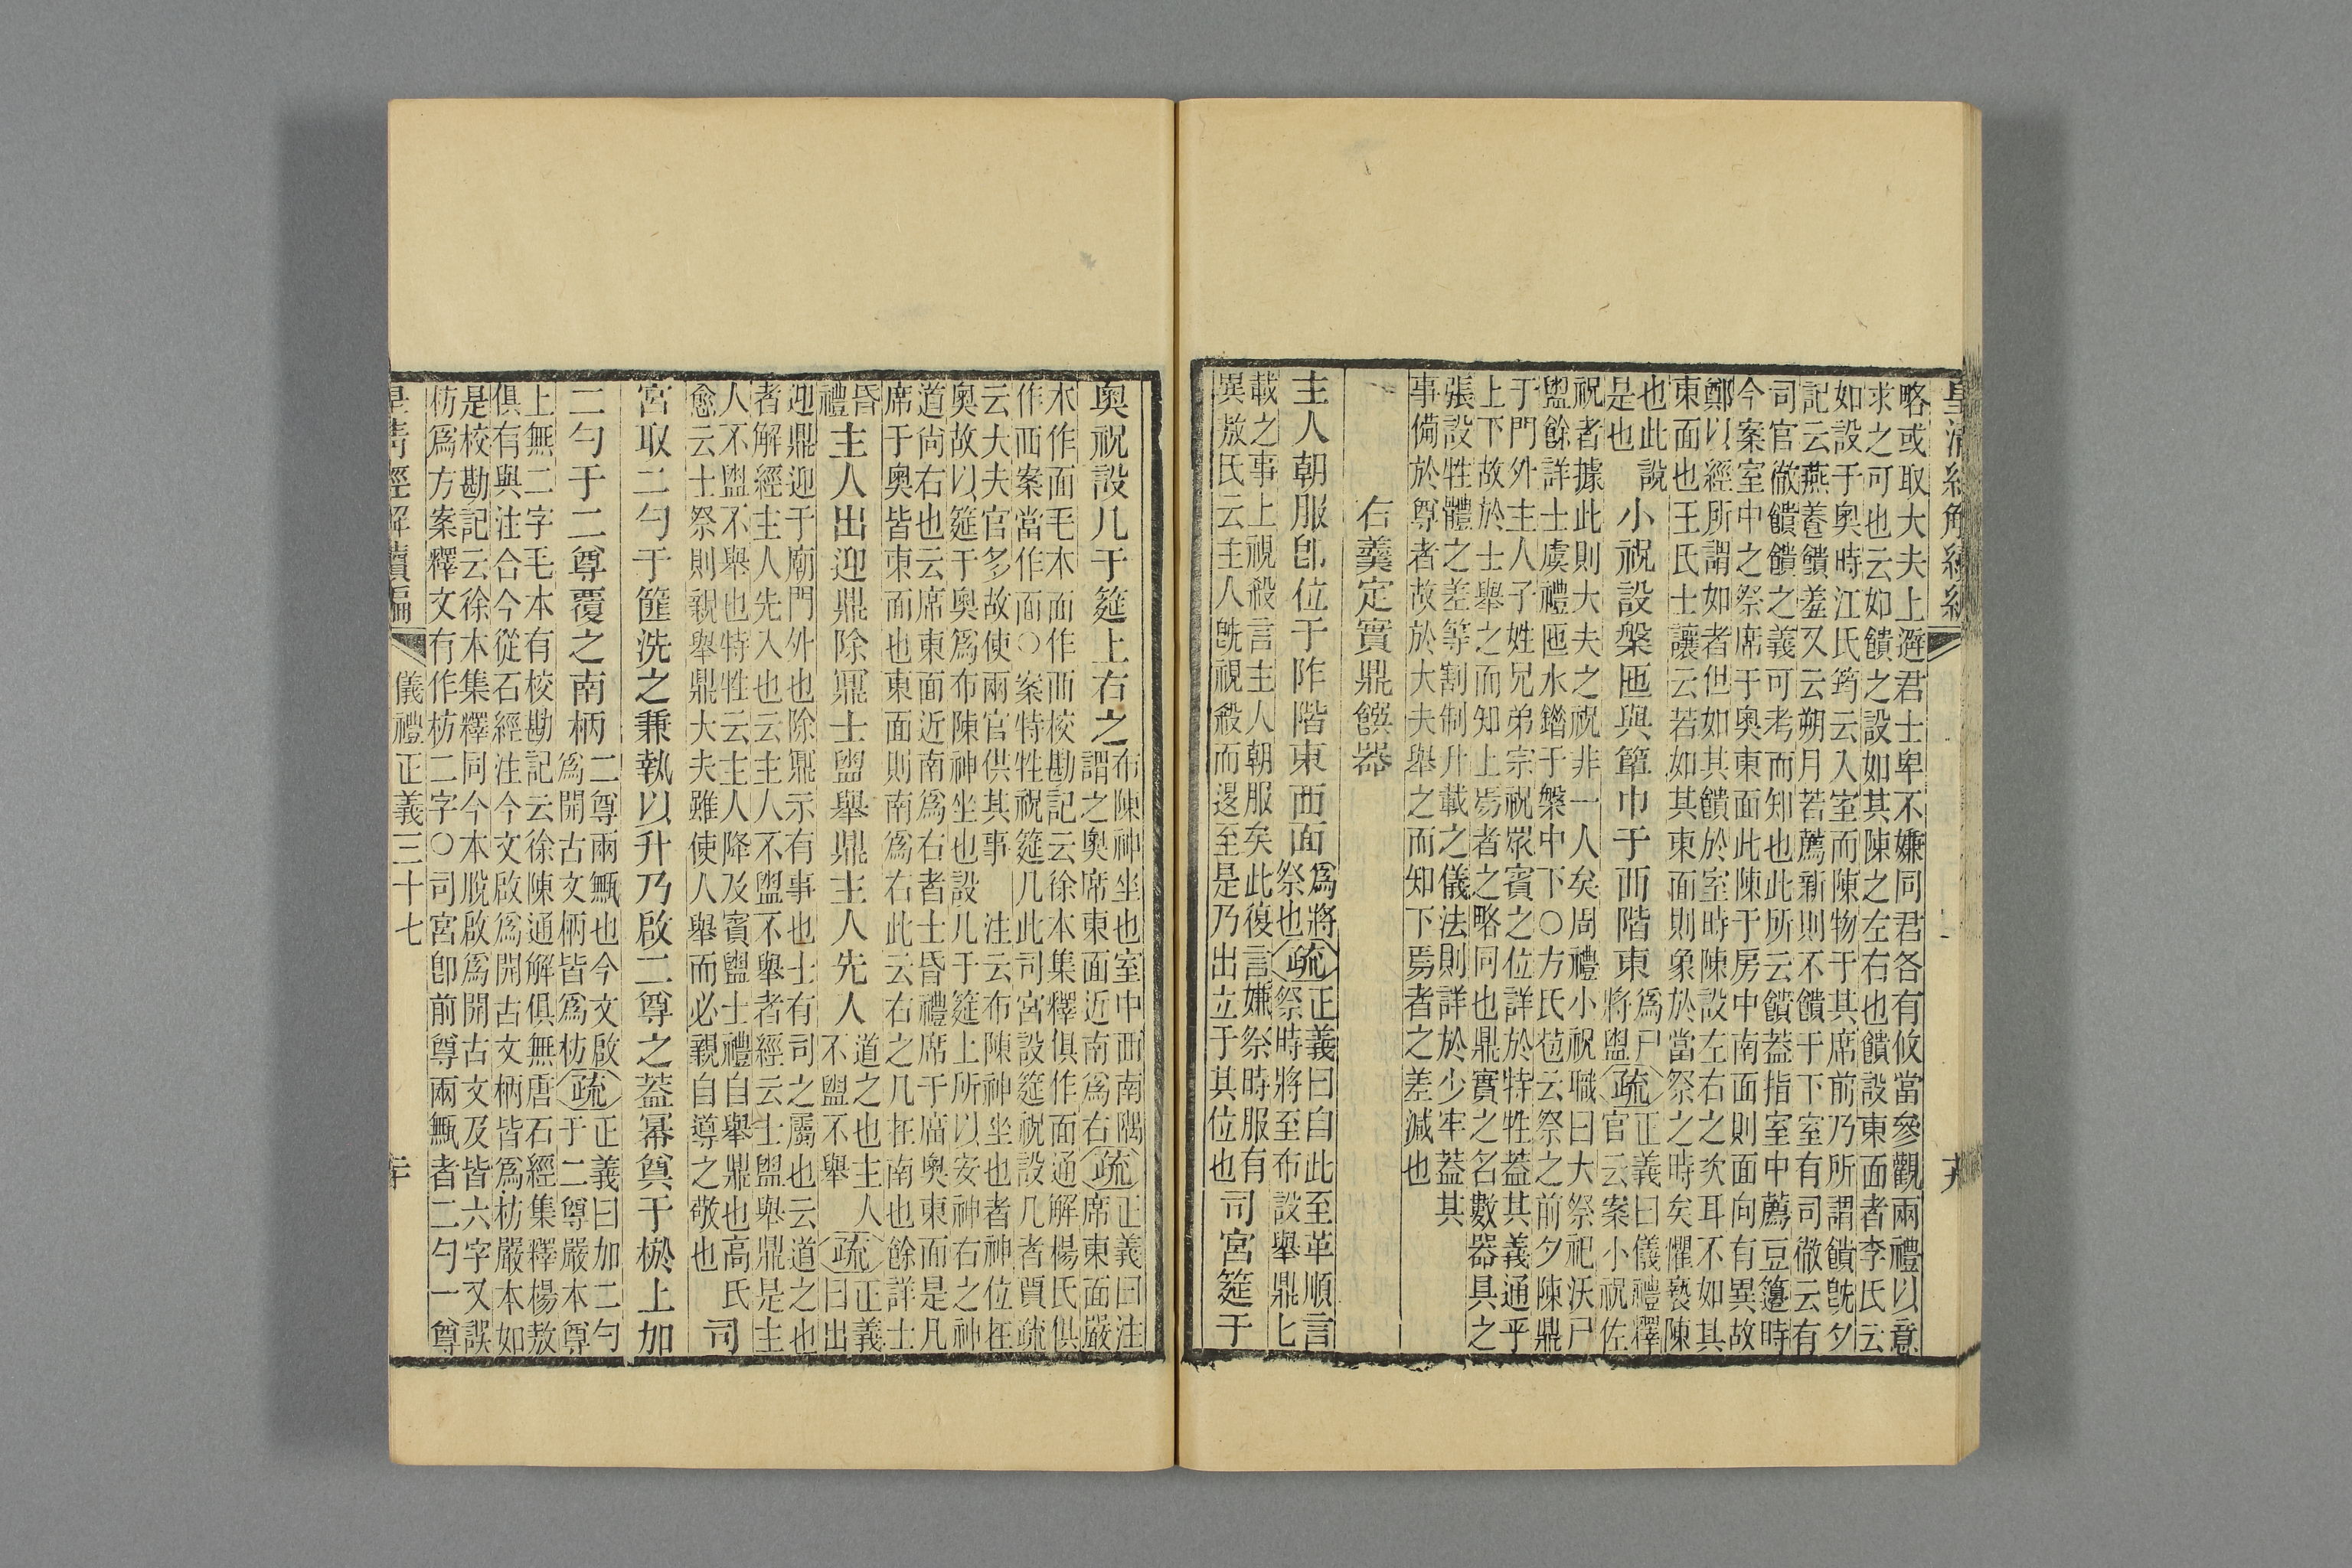 略或取大夫上避君士卑不嫌同君各有攸當參觀兩禮以意
求之可也云如饋之設如其陳之左右也饋設東面者李氏云
如設于奧時江氏筠云入室而陳物于其席前乃所謂饋旣夕
記云燕養饋羞又云朔月若薦新則不饋于下室有司徹云有
司官徹饋饋之義可考而知也此所云饋葢指室中薦豆籩時
今案室中之祭席于奧東面此陳于房中南面則面向有異故
鄭以經所謂如者但如其饋於室時陳設左右之次耳不如其
東面也王氏士讓云若如其東面則象於當祭之時矣懼褻陳
也此說是也小祝設槃匜與簞巾于西階東爲尸將盥疏正義曰儀禮釋官云案小祝佐
祝者據此則大夫之祝非一人矣周禮小祝職曰大祭祀沃尸
盥餘詳士虞禮匜水錯于槃中下○方氏苞云祭之前夕陳鼎
于門外主人子姓兄弟宗祝眾賓之位詳於特牲葢其義通乎
上下故於士舉之而知上焉者之略同也鼎實之名數器具之
張設牲體之差等割制升載之儀法則詳於少牢葢其
事備於尊者故於大夫舉之而知下焉者之差減也
右羹定實鼎饌器
主人朝服卽位于阼階東西面爲將祭也疏正義曰自此至革順言祭時將至布設舉鼎匕
載之事上視殺言主人朝服矣此復言嫌祭時服有異敖氏云主人旣視殺而退至是乃出立于其位也司宮筵于
奧祝設几于筵上右之布陳神坐也室中西南隅謂之奧席東面近南爲右疏正義曰注席東面嚴
本作面毛本面作西校勘記云徐本集釋俱作面通解楊氏俱
作西案當作面○案特牲祝筵几此司宮設筵祝設几者賈疏
云大夫官多故使兩官供其事注云布陳神坐也者神位在
奧故以筵于奧爲布陳神坐也設几于筵上所以安神右之神
道尙右也云席東面近南爲右者士昏禮席于廟奧東面是凡
席于奧皆東面也東面則南爲右此云右之几在南也餘詳士
昏禮主人出迎鼎除鼏士盥舉鼎主人先入道之也主人不盥不舉疏正義曰出
迎鼎迎于廟門外也除鼏示有事也士有司之屬也云道之也
者解經主人先入也云主人不盥不舉者經云士盥舉鼎是主
人不盥不舉也特牲云主人降及賓盥士禮自舉鼎也高氏
愈云士祭則親舉鼎大夫雖使人舉而必親自導之敬也司
宮取二勺于篚洗之兼執以升乃啟二尊之葢冪奠于棜上加
二勺于二尊覆之南柄二尊兩甒也今文啟爲開古文柄皆爲枋疏正義曰加二勺于二尊嚴本尊
上無二字毛本有校勘記云徐陳通解俱無唐石經集釋楊敖
俱有與注合今從石經注今文啟爲開古文柄皆爲枋嚴本如
是校勘記云徐本集釋同今本脫啟爲開古文及皆六字又誤
枋爲方案釋文有作枋二字○司宮卽前尊兩甒者二勺一尊
儀禮正義三十七